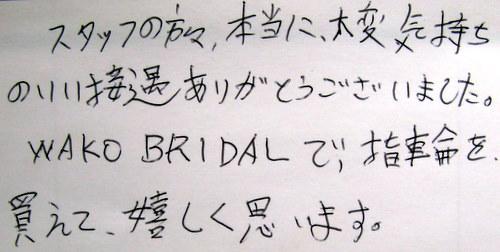 スタッフの方々,本当に、大変気持ち
のいい接遇ありがとうございました。
WAKO BRIDALで,指輪を、
買えて、嬉しく思います。